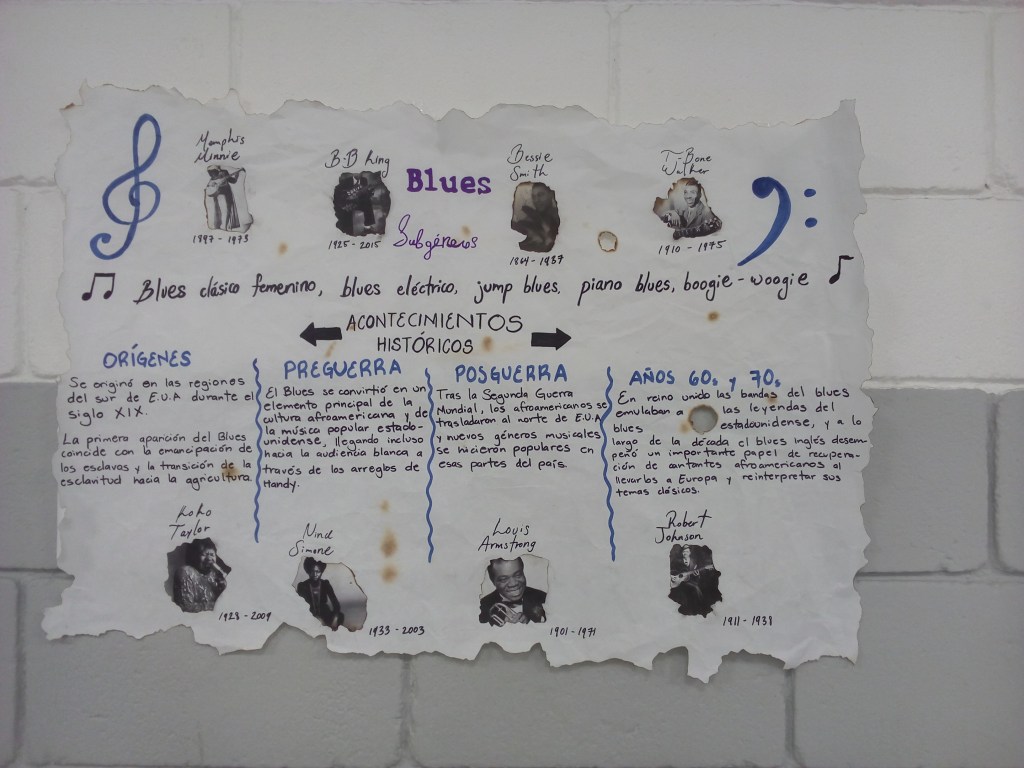 Memphis
Minnie
1897 - 1973
B.B King
1925 - 2015
Blues
Subgéneros
Bessie
Smith
1894 - 1937
T-Bone
Walker
1910 - 1975
Blues clásico femenino, blues eléctrico, jump blues, piano blues, boogie - woogie
ACONTECIMIENTOS
HISTÓRICOS
ORÍGENES
Se originó en las regiones
del sur de E.U.A durante el
siglo XIX.
La primera aparición del Blues
coincide con la emancipación de
los esclavos y la transición de la
esclavitud hacia la agricultura.
PREGUERRA
El Blues se convirtió en un
elemento principal de la
cultura afroamericana y de
la música popular estado-
unidense, llegando incluso
hacia la audiencia blanca a
través de los arreglos de
Handy.
POSGUERRA
Tras la Segunda Guerra
Mundial, los afroamericanos se
trasladaron al norte de E.U.A
y nuevos géneros musicales
se hicieron populares en
esas partes del país.
AÑOS 60s y 70s
En reino unido las bandas del blues
emulaban a las leyendas del
blues estadounidense, y a lo
largo de la década el blues inglés desem-
peñó un importante papel de recupera-
ción de cantantes afroamericanos al
llevarlos a Europa y reinterpretar sus
temas clásicos.
KoKo
Taylor
1928 - 2009
Nina
Simone
1933 - 2003
Louis
Armstrong
1901 - 1971
Robert
Johnson
1911 - 1938